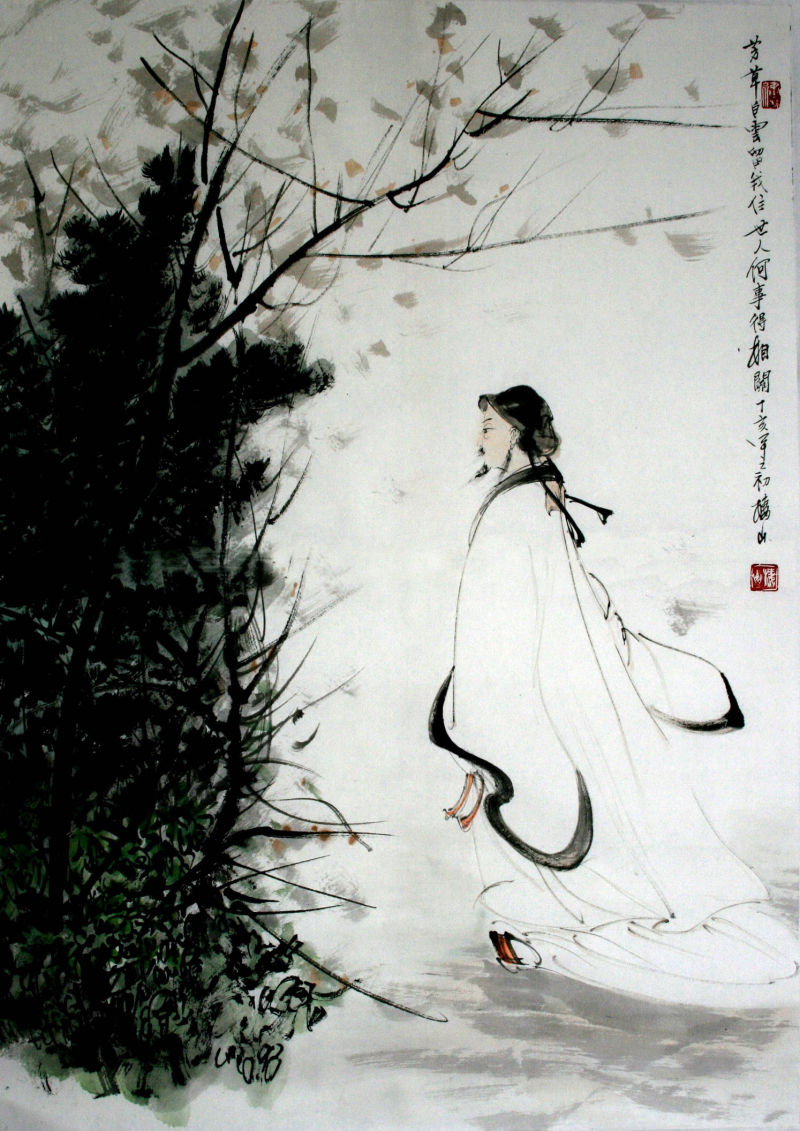 芳草白雲留我住世人何事得相關丁亥初山